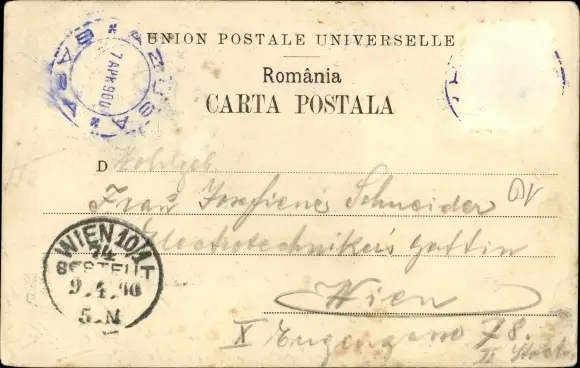 UNION POSTALE UNIVERSELLE
România
CARTA POSTALA
7 APR 900
D Wohlgeb
Frau Josefiene Schneider
Electrotechnikers Gattin
Wien
X Eugengasse 78.
II Stock
WIEN 10/1
BESTELLT
9.4.00
5.N